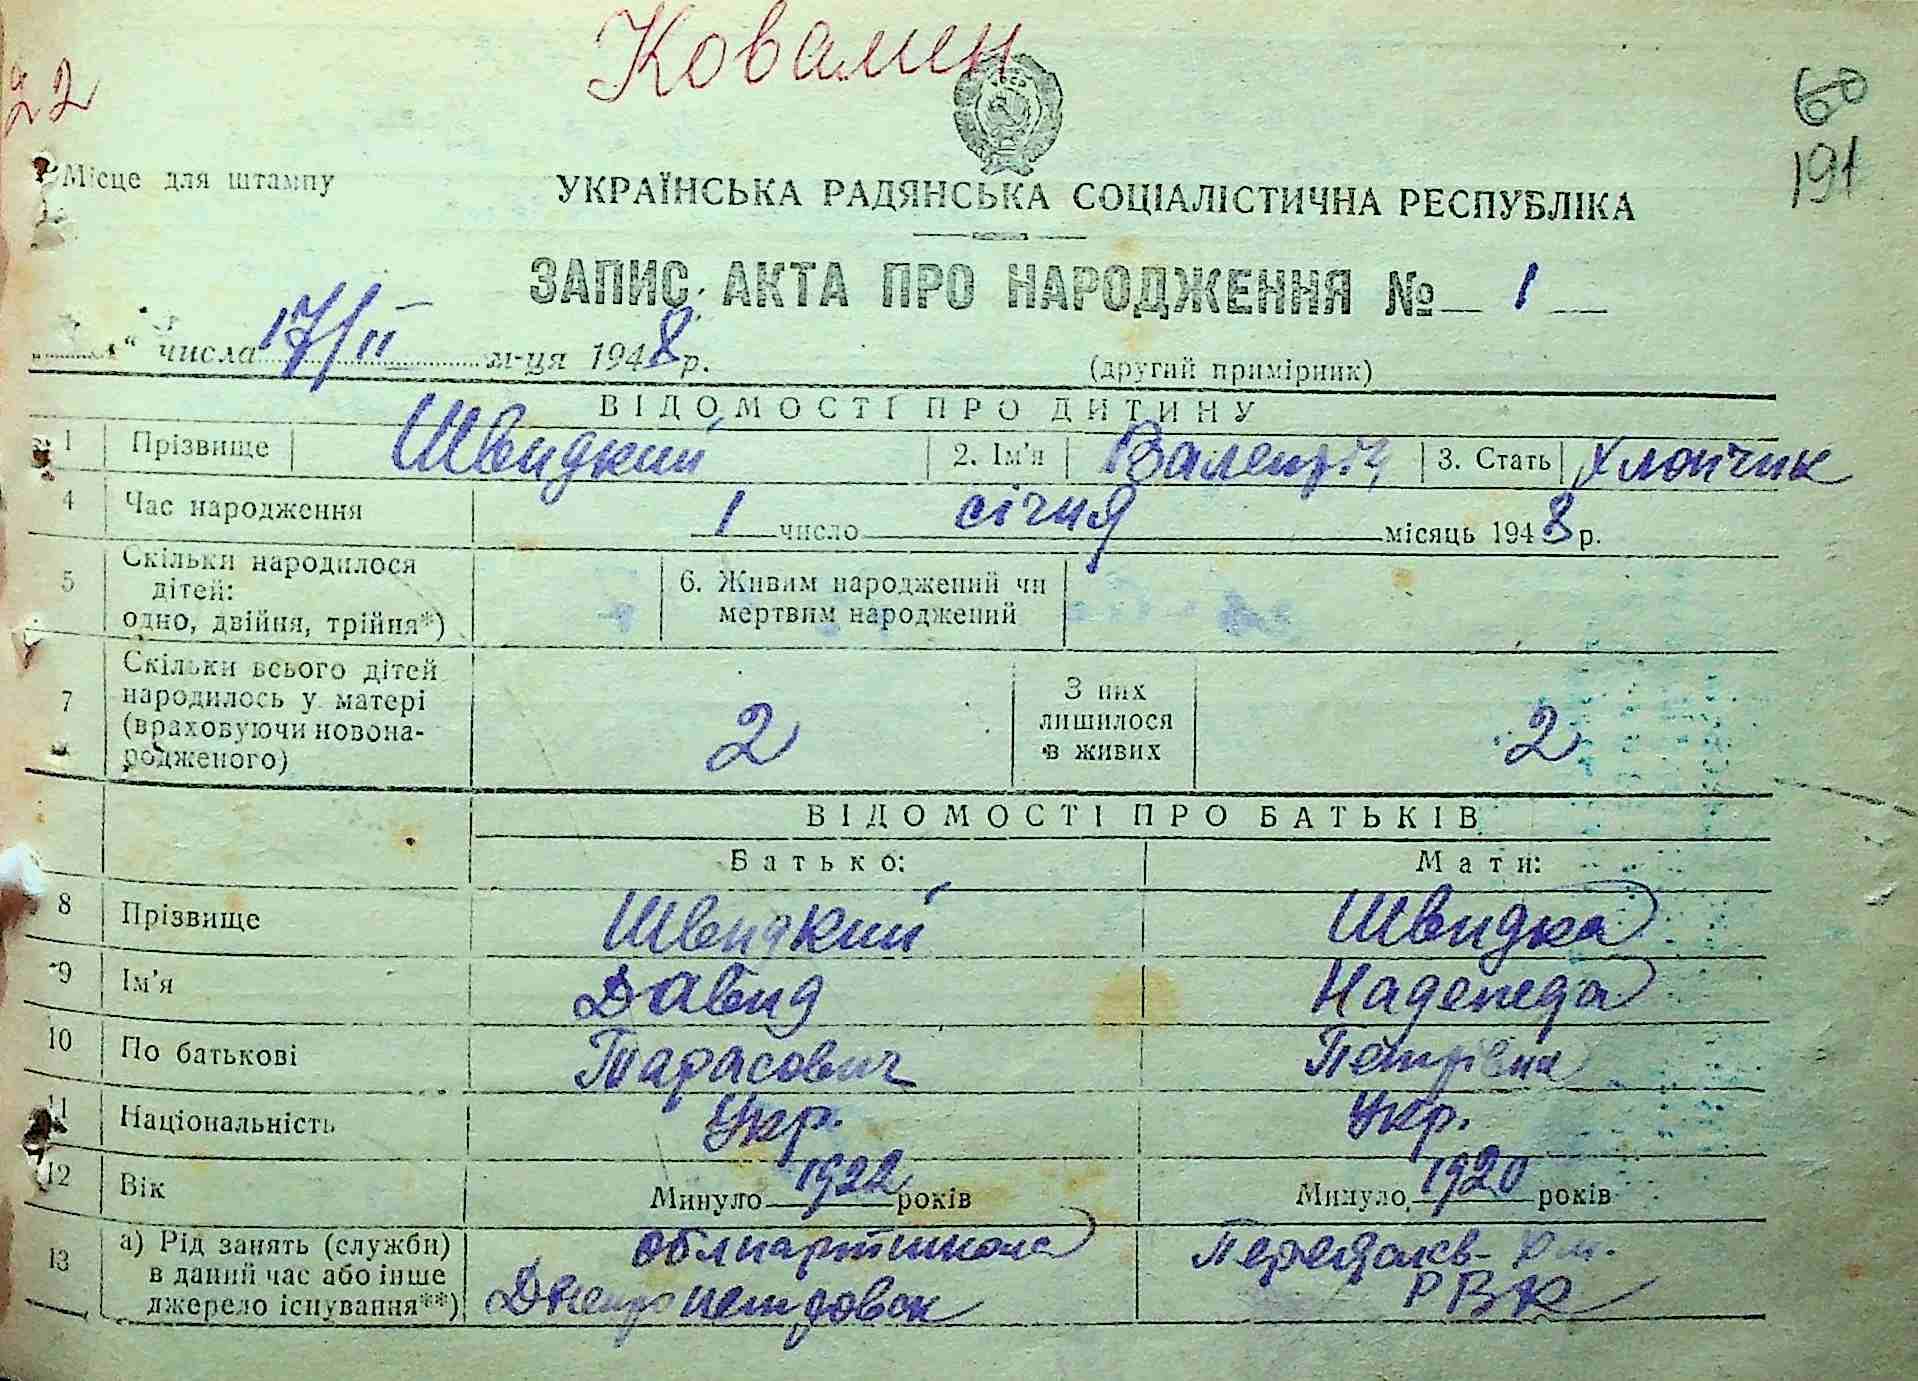 22
60
191
Місце для штампу
УКРАЇНСЬКА РАДЯНСЬКА СОЦІАЛІСТИЧНА РЕСПУБЛІКА
ЗАПИС АКТА ПРО НАРОДЖЕННЯ № 1
„ “ числа 17/II м-ця 1948 р.
(другий примірник)
ВІДОМОСТІ ПРО ДИТИНУ
1 Прізвище Швидкий 2. Ім'я Валерій 3. Стать Хлопчик
4 Час народження 1 число січня місяць 1948 р.
5 Скільки народилося
дітей:
одно, двійня, трійня*)
6. Живим народжений чи
мертвим народжений
7 Скільки всього дітей
народилось у матері
(враховуючи новона-
родженого)
2
З них
лишилося
в живих
2
ВІДОМОСТІ ПРО БАТЬКІВ
Батько: Мати:
8 Прізвище Швидкий Швидка
9 Ім'я Давид Надежда
10 По батькові Тарасович Петрівна
11 Національність Укр. Укр.
12 Вік Минуло 1922 років Минуло 1920 років
13 а) Рід занять (служби)
в даний час або інше
джерело існування**)
облпартшкола
Днепропетровск
РВК